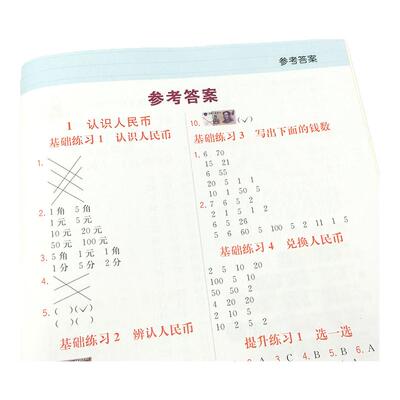 参考答案
参考答案
1 认识人民币
基础练习1 认识人民币
1.
2. 1角 5角
1元 5元
10元 20元
50元 100元
3. 5角 1元 1角
1分 5分 2分
4.
5. ( )(✓)
( )( )
基础练习2 辨认人民币
10. (✓)
基础练习3 写出下面的钱数
1. 6 70
15 21
6 55
20 5 1 1
10 1 50 5
2. 7 6 6 2
2 1 5 1 2
6 6 5
5 6 60 5 100 5 2 11 5
基础练习4 兑换人民币
2 5 10 20
100 5 10
50 50 2
20 4
5 2
2 10
10 2 5 2
提升练习1 选一选
A 3. C 4. B 5. B 6. A